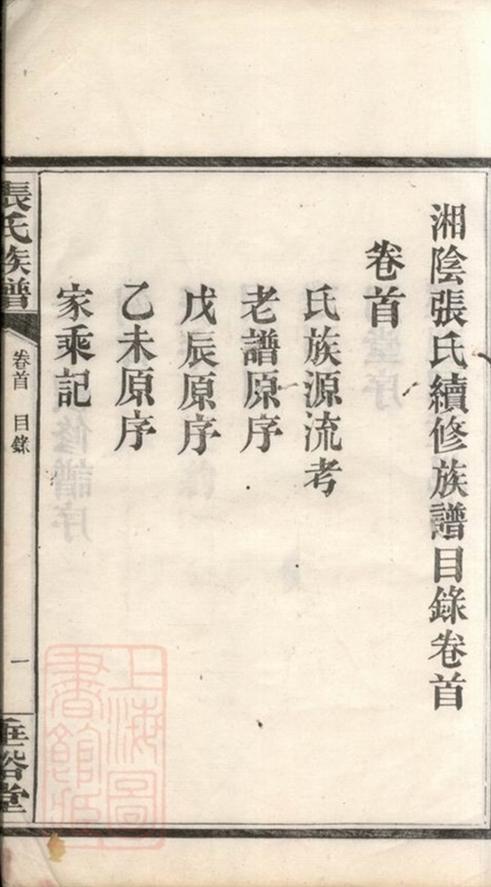 湘陰張氏續修族譜目錄卷首
卷首
氏族源流考
老譜原序
戊辰原序
乙未原序
家乘記
張氏族譜
卷首 目錄
一
垂裕堂
上海圖書館藏